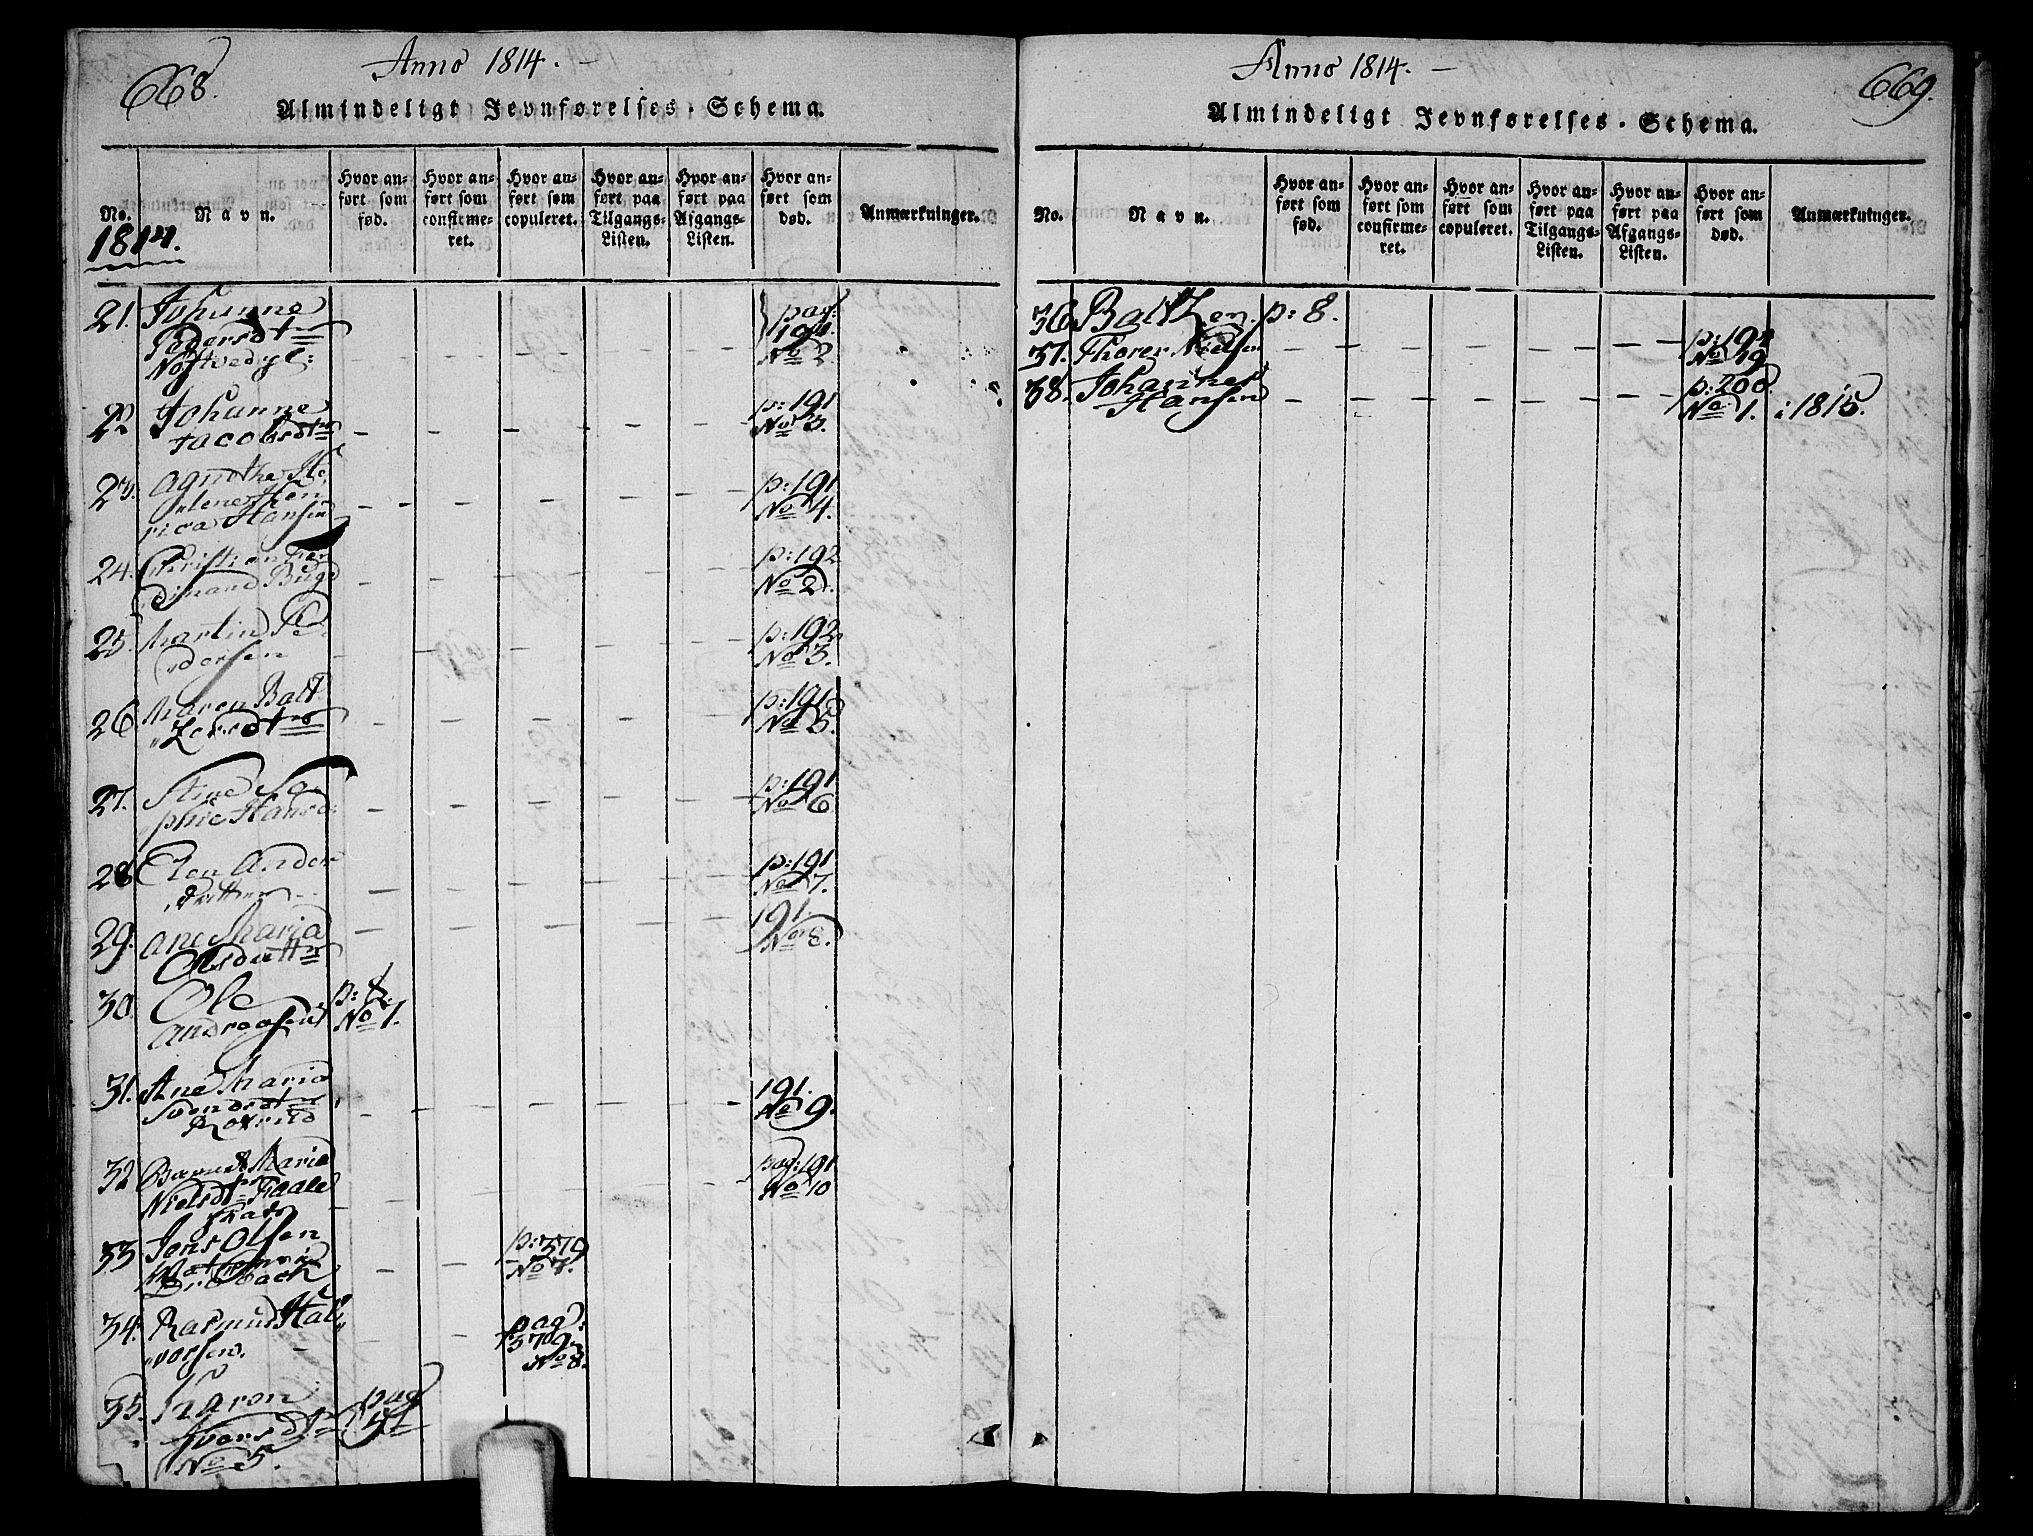 668.
Anno 1814. -
Almindeligt Jevnførelses-Schema.
No.
Navn.
Hvor anført som fød.
Hvor anført som confirmeret.
Hvor anført som copuleret.
Hvor anført paa Tilgangs-Listen.
Hvor anført paa Afgangs-Listen.
Hvor anført som død.
Anmærkninger.
1814.
21. Johanne pag:
Pedersdtr 191.
No 2.
22 Johanne p: 191
Jacobsdtr No 3.
23. Agnethe
p: 191
rica Hansen No 4.
24. Christian Fer p: 192
dinand No 2.
25. Martin Pe p: 192
dersen No 3.
26 Maren Balt p: 191
Zersdtr No 5.
27. Stine So p: 191
phie Hansd: No 6
28 Elen Anders p: 191
datter No 7.
29. Ane Maria 191.
Olsdattr No 8.
30 Ole p: 8.
Andreasen No 1.
31. Ane Maria 191.
Svendsdtr No 9.
32 Maria pag: 191
Nielsdtr No 10
33 Jens Olsen p: 379
No 7.
34. Rasmus Hal pag:
vorsen. 379.
No 8.
35. Karen pag
Iversdtr 51
No 5.
Anno 1814. -
669.
Almindeligt Jevnførelses-Schema.
No.
Navn.
Hvor anført som fød.
Hvor anført som confirmeret.
Hvor anført som copuleret.
Hvor anført paa Tilgangs-Listen.
Hvor anført paa Afgangs-Listen.
Hvor anført som død.
Anmærkninger.
36 Baltzer. p: 8.
37. Thorer Nielsen p: 194
No 19
38. Johannes p: 200
Hansen No 1. i 1815.